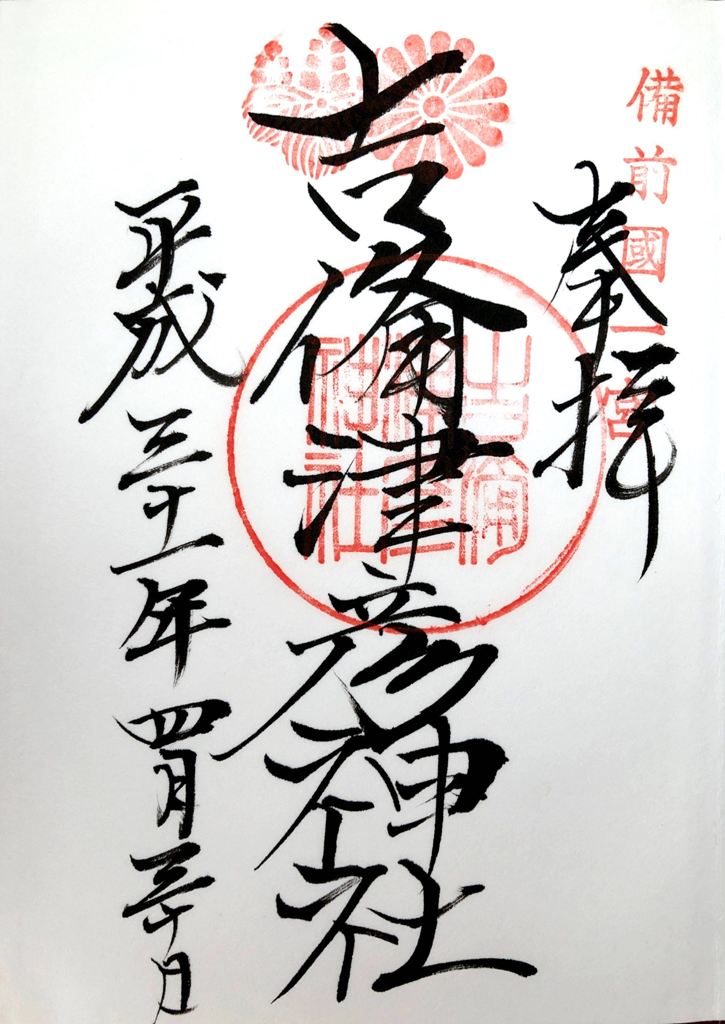 備前國一宮
奉拝
吉備津彦神社
吉備津彦神社
平成三十一年四月三十日